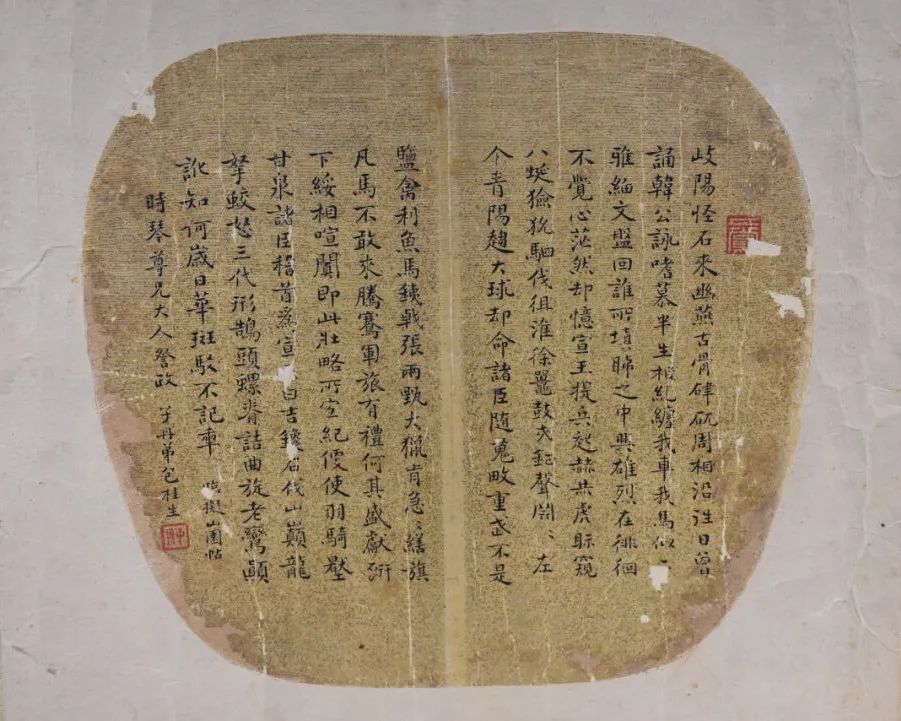 岐陽怪石來幽燕古骨硉矹周相沿往日曾
誦韓公詠嗜慕半生相糺纏我車我馬似〻
雅緬文盤回誰所填睇之中興雄烈在徘徊
不覺心茫然却憶宣王提兵起赫共虎眎窺
八埏獫狁駟伐徂淮徐鼉鼓夫鉦聲閙〻左
个青陽趨大球却命諸臣隨蒐畋重武不是
鹽禽利魚馬鋑戟張兩甄大獵肯急〻繕旗
凡馬不敢來騰騫軍旅有禮何其盛獻
下綏相喧闐即此壯略所空紀便使羽騎壓
甘泉諸臣稽首為宣曰吉鑱石伐山巔龍
拏蛟怒三代形鵠頭螺脊詰曲旋老鸞顛
訛知何歲日華斑駁不記年
臨擬山園帖
時琴尊兄大人詧政
子丹弟包桂生